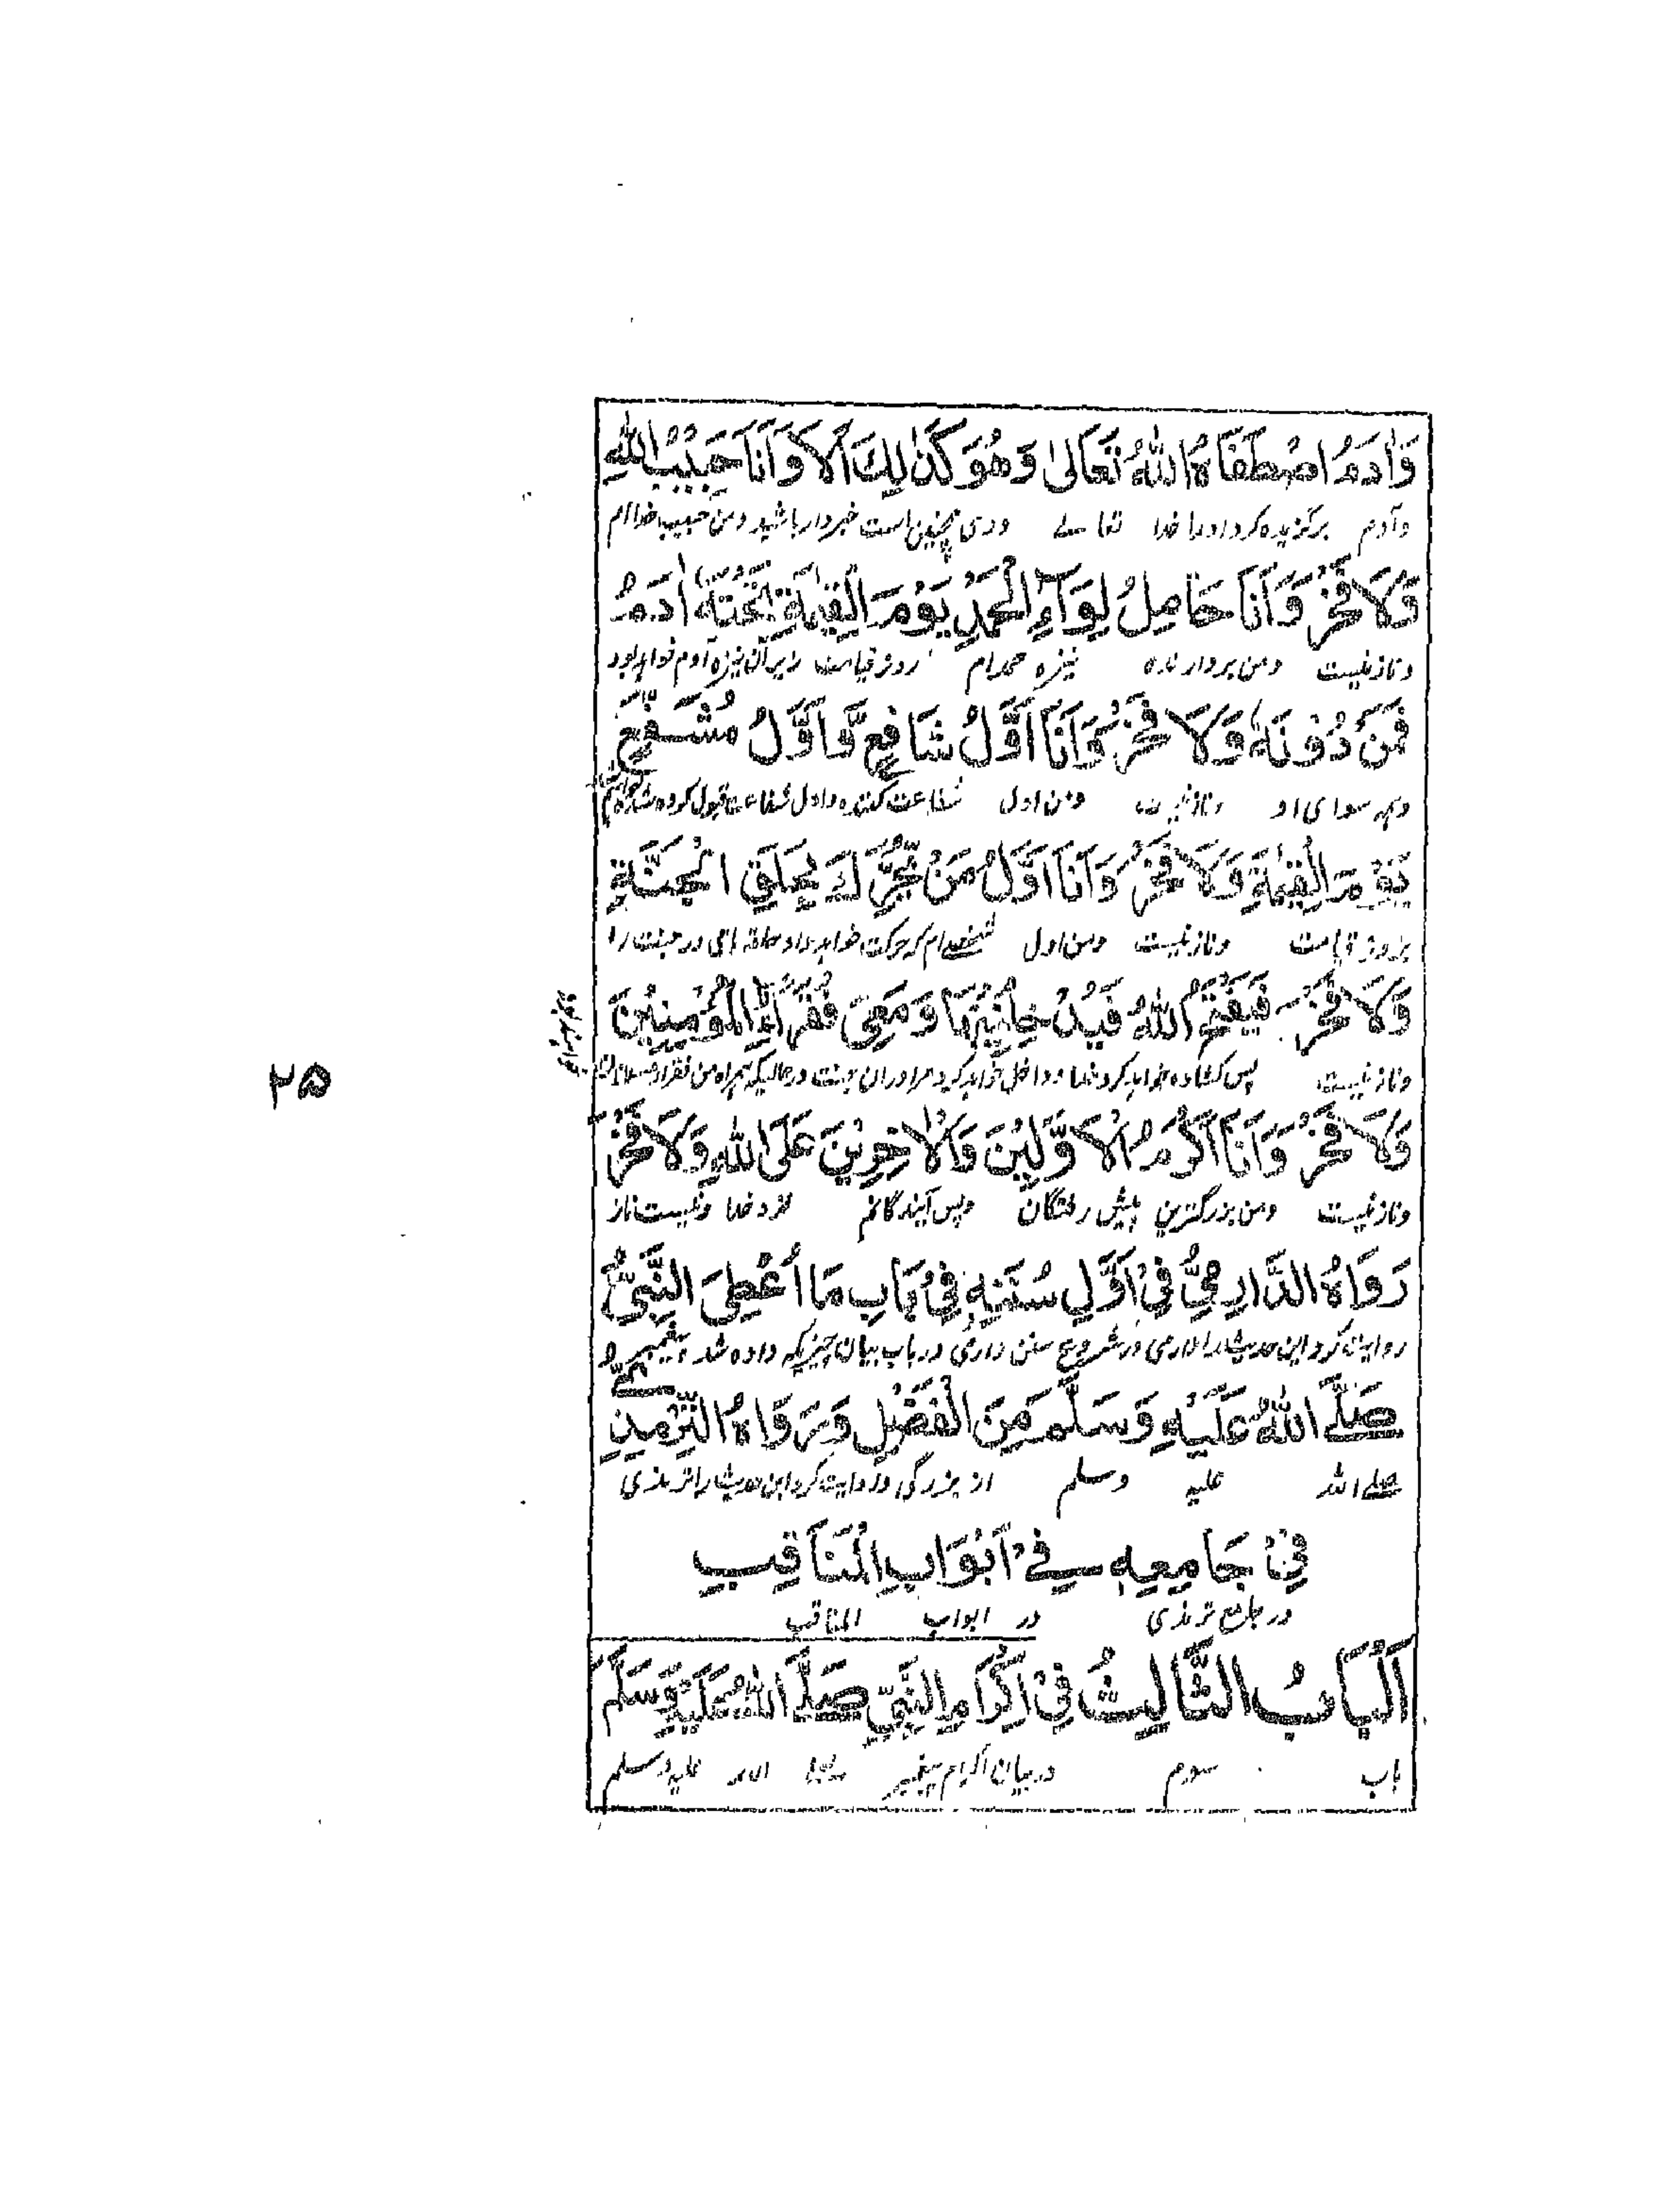 وَاٰدَمُ اصْطَفَاهُ اللهُ تَعَالٰی وَهُوَ کَذٰلِكَ اَلَا وَاَنَا حَبِیْبُ اللهِ
وآدم برگزیده کرد اورا خدا تعالے ووی چنین است خبردار باشید ومن حبیب خدا ام
وَلَا فَخْرَ وَاَنَا حَامِلُ لِوَآءِ الْحَمْدِ یَوْمَ الْقِیٰمَةِ تَحْتَهٗ اٰدَمُ
وناز نیست ومن بردارنده نیزه حمدام روز قیامت زیر آن نیزه آدم خواهد بود
فَمَنْ دُوْنَهٗ وَلَا فَخْرَ وَاَنَا اَوَّلُ شَافِعٍ وَّاَوَّلُ مُشَفَّعٍ
وهر سوای او وناز نیست ومن اول شفاعت کننده واول شفاعت قبول کرده شده
یَوْمَ الْقِیٰمَةِ وَلَا فَخْرَ وَاَنَا اَوَّلُ مَنْ یُّحَرِّكَ بِحَلَقِ الْجَنَّةِ
بروز قیامت وناز نیست ومن اول شخصے ام که حرکت خواهد داد حلقه های در جنت را
وَلَا فَخْرَ فَیَفْتَحُ اللهُ فَیُدْخِلُنِیْهَا وَمَعِیَ فُقَرَآءُ الْمُؤْمِنِیْنَ
وناز نیست پس کشاده خواهد کرد خدا وداخل خواهد کرد مرا دران جنت درحالیکه همراه من فقراء مسلمانان
وَلَا فَخْرَ وَاَنَا اَکْرَمُ الْاَوَّلِیْنَ وَالْاٰخِرِیْنَ عَلَی اللهِ وَلَا فَخْرَ
وناز نیست ومن بزرگترین پیش رفتگان وپس آیندگانم نزد خدا ونیست ناز
رَوَاهُ الدَّارِمِیُّ فِیْ اَوَّلِ سُنَنِهٖ فِیْ بَابِ مَا اُعْطِیَ النَّبِیُّ
روایت کرد این حدیث را دارمی در شروع سنن دارمی در باب بیان چیزیکه داده شد پیغمبر
صَلَّے اللهُ عَلَیْهِ وَسَلَّمَ مِنَ الْفَضْلِ وَرَوَاهُ التِّرْمِذِیُّ
صلے الله علیه وسلم از بزرگی وروایت کرد این حدیث را ترمذی
فِیْ جَامِعِهٖ فِے اَبْوَابِ الْمَنَاقِبِ
در جامع ترمذی در ابواب المناقب
اَلْبَابُ الثَّالِثُ فِیْ اِکْرَامِ النَّبِیِّ صَلَّے اللهُ عَلَیْهِ وَسَلَّمَ
باب سوم در بیان اکرام پیغمبر صلے الله علیه وسلم
۲۵